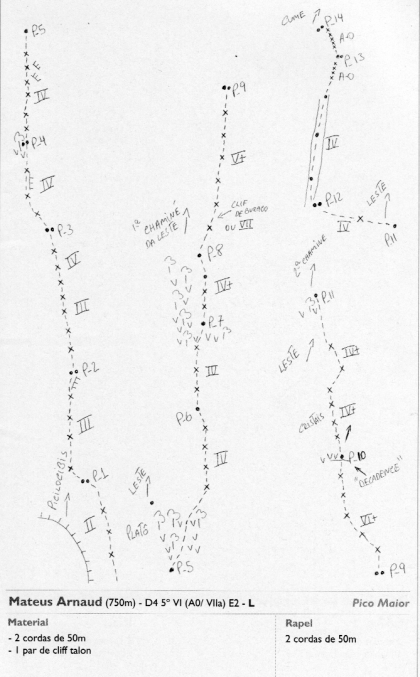 P-5
E
E
IV
P-4
E
IV
P-3
IV
III
P-2
III
P-1
II
P-9
V+
CLIF
DE BURACO
OU VII
1ª CHAMINÉ
DA LESTE
P-8
IV+
P-7
IV
P-6
IV
LESTE
PLATÔ
P-5
CUME
P-14
A-0
P-13
A-0
P-12
IV
LESTE
P-11
2ª CHAMINÉ
P-11
LESTE
IV+
IV+
CRISTAIS
P-10
"DECADENCE"
VI+
P-9
Mateus Arnaud (750m) - D4 5º VI (A0/ VIIa) E2 - L
Pico Maior
Material
- 2 cordas de 50m
- 1 par de cliff talon
Rapel
2 cordas de 50m